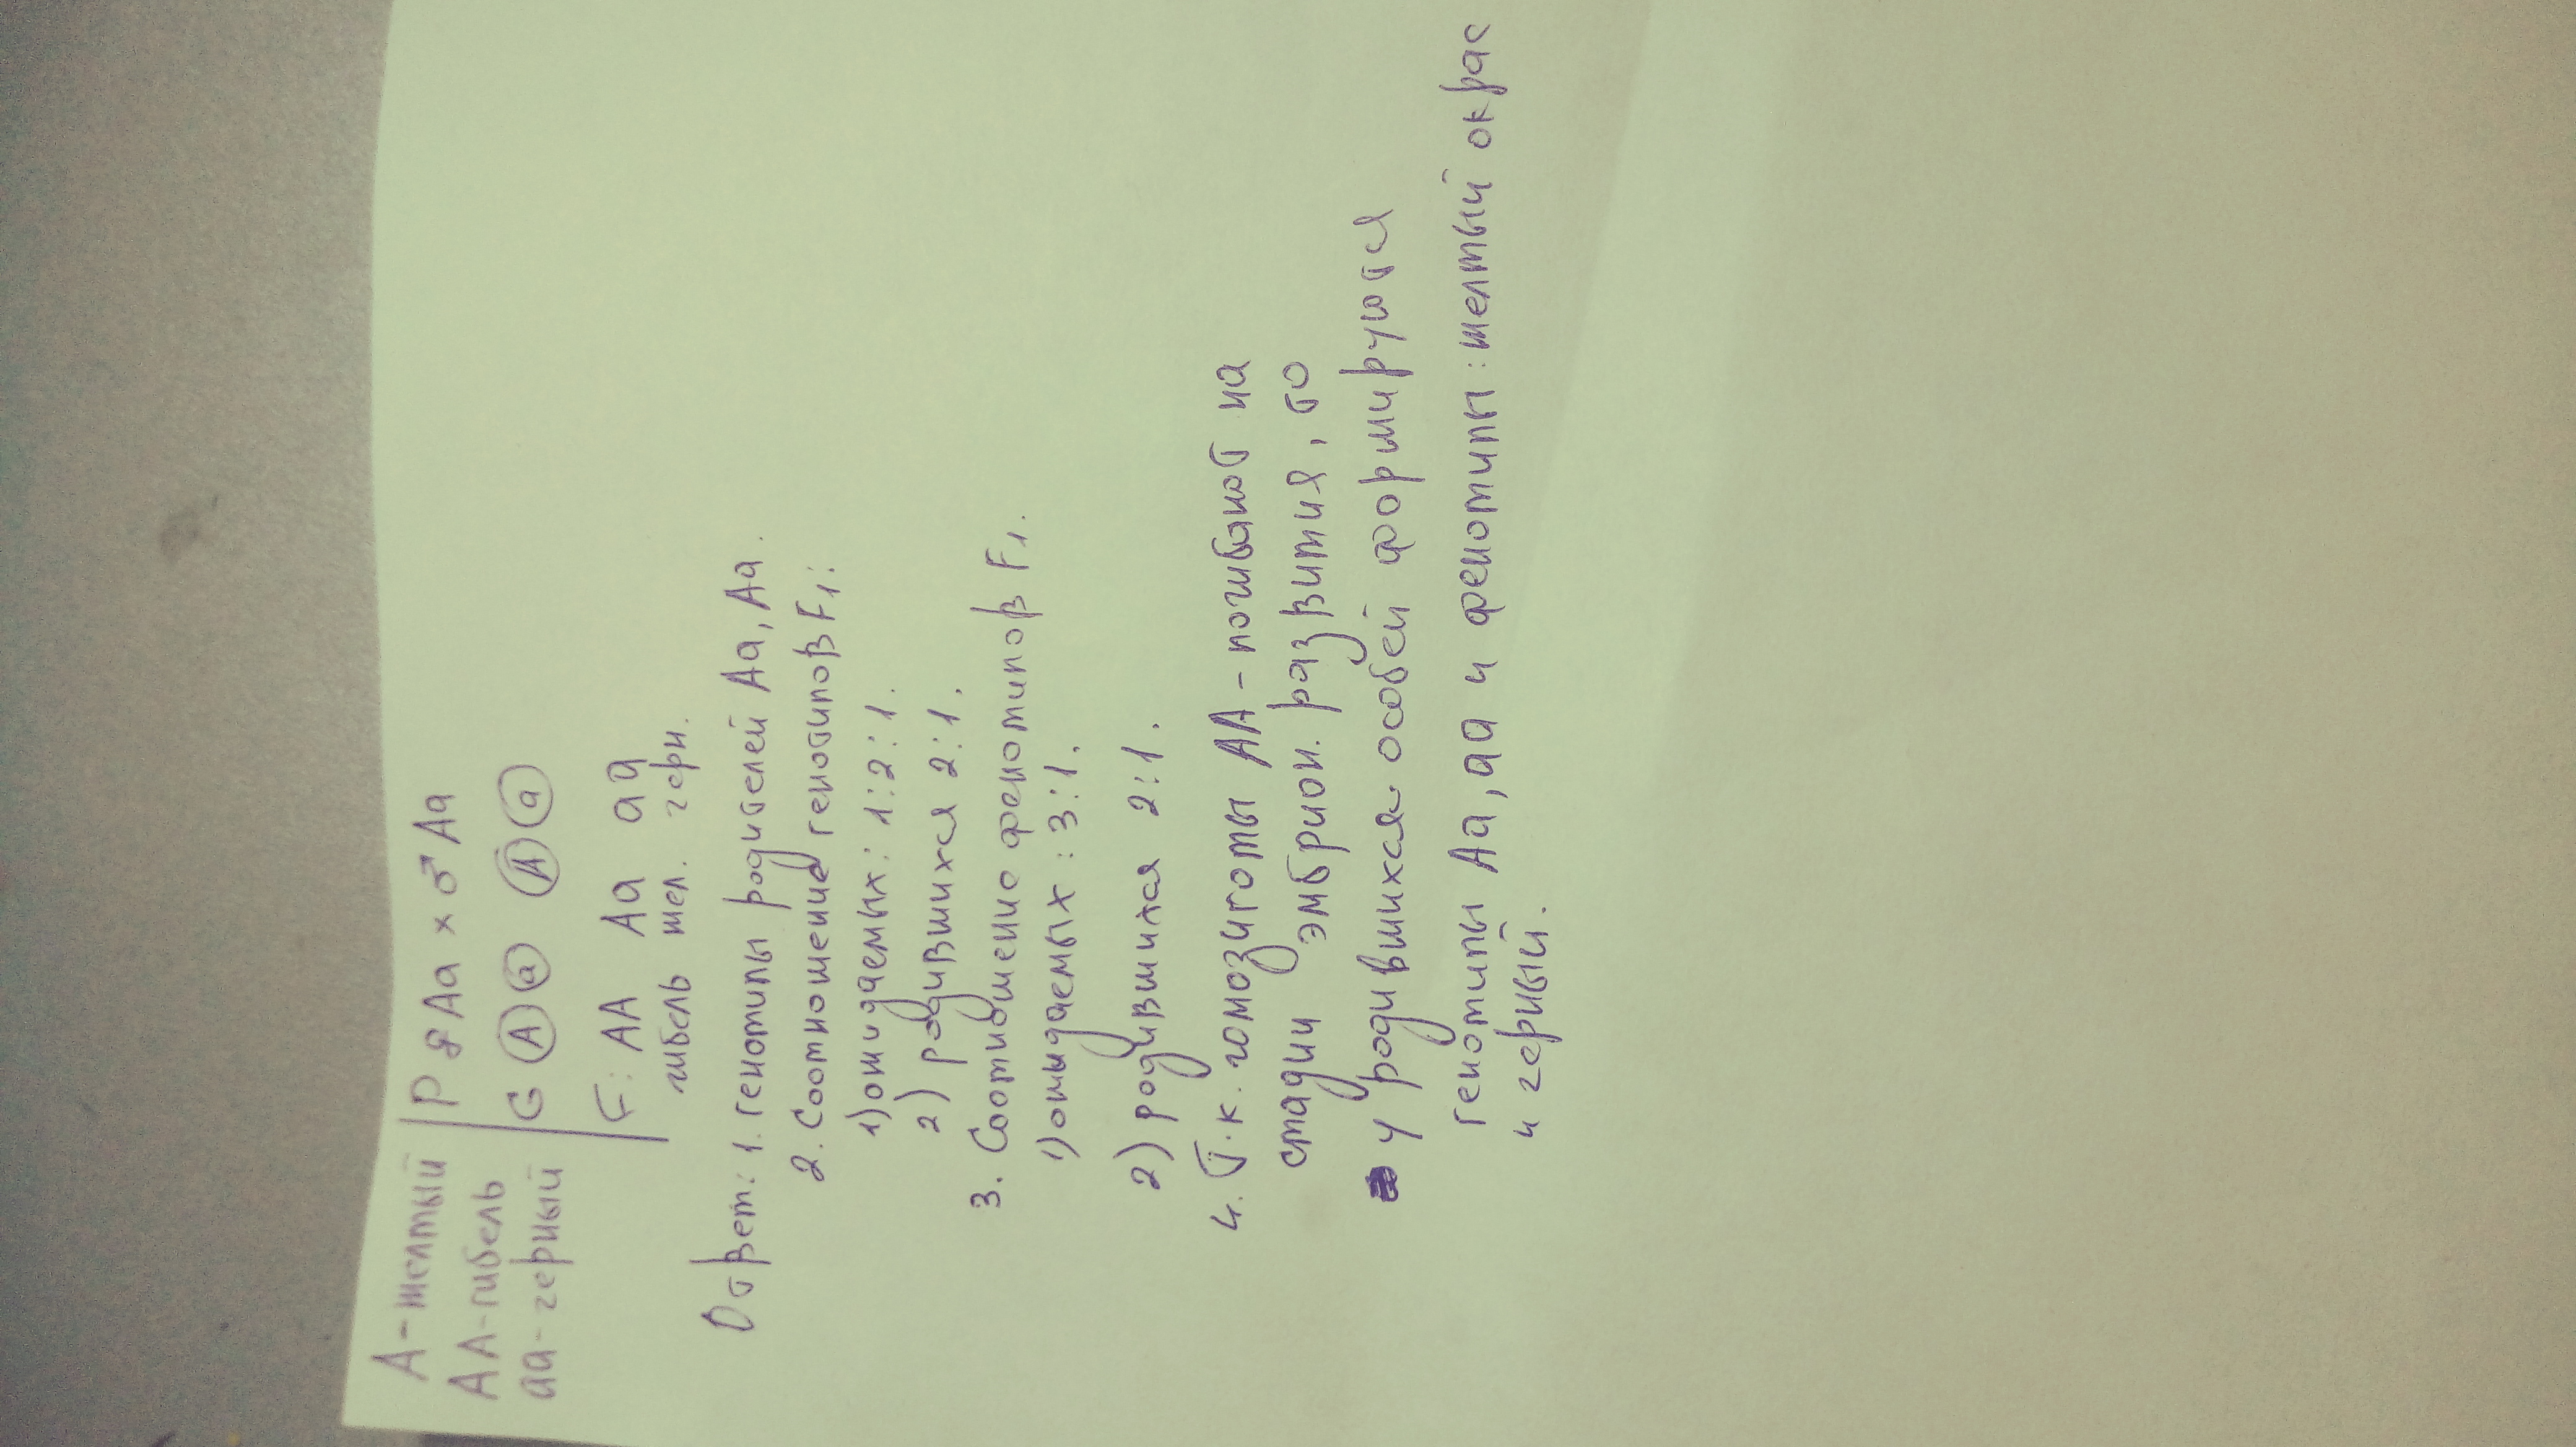 А - желтый
АА - гибель
аа - черный
P ♀ Аа × ♂ Аа
G А а А а
F: АА Аа аа
гибель жел. черн.
Ответ: 1. Генотипы родителей Аа, Аа.
2. Соотношение генотипов F1:
1) ожидаемых: 1:2:1.
2) родившихся 2:1.
3. Соотношение фенотипов F1.
1) ожидаемых: 3:1.
2) родившихся 2:1.
4. Т.к. гомозиготы АА - погибают на
стадии эмбрион. развития, то
у родившихся особей формируются
генотипы Аа, аа и фенотипы: желтый окрас
и черный.